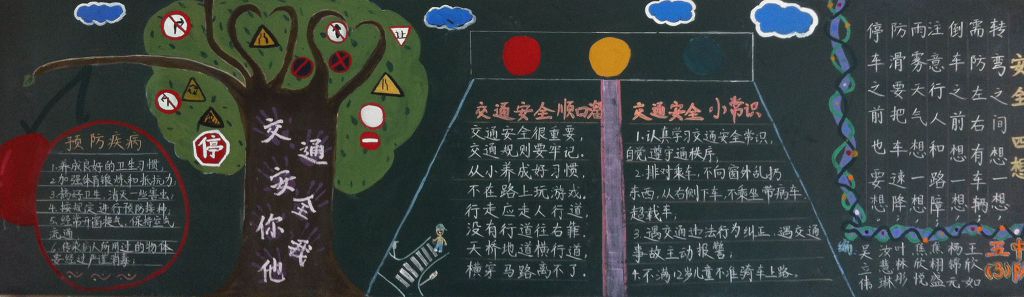 预防疾病
1.养成良好的卫生习惯,
2.加强体育锻炼和抵抗力,
3.搞好卫生,消灭一些害虫,
4.按规定进行预防接种,
5.经常开窗换气,保持空气
流通
6.传染病人所用过的物体
要经过严谨消毒,
停
交通
安全
你我
他
交通安全顺口溜
交通安全很重要,
交通规则要牢记.
从小养成好习惯,
不在路上玩游戏,
行走应走人行道,
没有行道往右靠.
天桥地道横行道,
横穿马路离不了.
交通安全小常识
1.认真学习交通安全常识,
自觉遵守交通秩序,
2.排对乘车,不向窗外乱扔
东西,从右侧下车,不乘坐带病车
超载车,
3.遇交通违法行为纠正,遇交通
事故主动报警,
4.不满12岁儿童不准骑车上路.
安全四想
转弯之间想一想
需防左右有车辆,
倒车之前想一想
注意行人和路障
雨雾天气车速降
防滑要把
停车之前也要想
五中